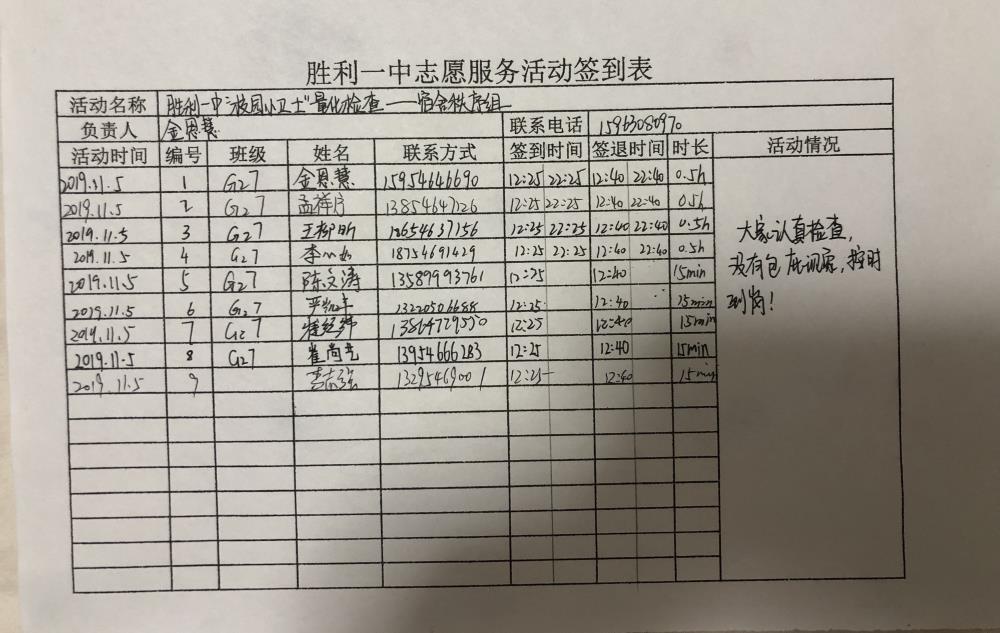 胜利一中志愿服务活动签到表
活动名称 胜利一中"校园小卫士"量化检查——宿舍秩序组
负责人 金恩慧 联系电话 15963080970
活动时间 编号 班级 姓名 联系方式 签到时间 签退时间 时长 活动情况
2019.11.5 1 G27 金恩慧 15954646690 12:25 22:25 12:40 22:40 0.5h
2019.11.5 2 G27 孟祥序 13854647126 12:25 22:25 12:40 22:40 0.5h
2019.11.5 3 G27 王柳昕 18654637156 12:25 22:25 12:40 22:40 0.5h
2019.11.5 4 G27 李 18754691429 12:25 22:25 12:40 22:40 0.5h
2019.11.5 5 G27 陈文涛 13589993761 12:25 12:40 15min
2019.11.5 6 G27 13220506688 12:25 12:40 15min
2019.11.5 7 G27 12:25 12:40 15min
2019.11.5 8 G27 崔尚尧 13954666283 12:25 12:40 15min
2019.11.5 9 13295469001 12:25 12:40 15min
大家认真检查,
没有包庇现象,按时
到岗!